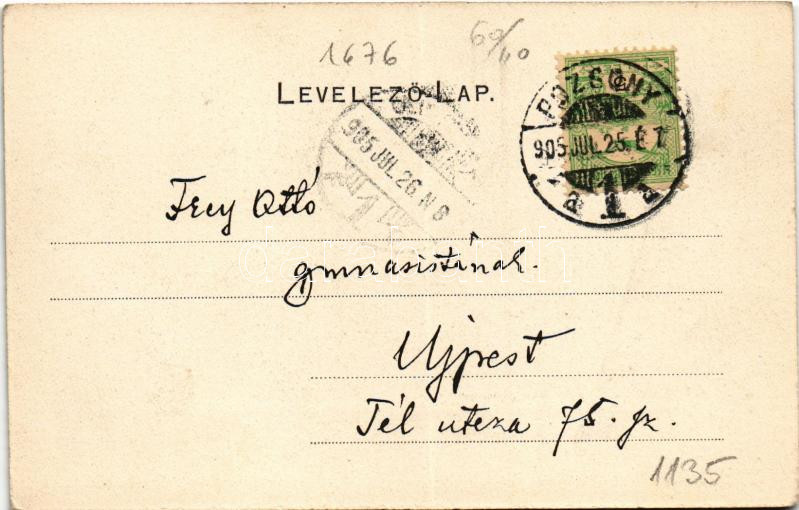 1676
60/40
LEVELEZŐ-LAP.
POZSONY
905 JUL. 25. E 7
1
905 JUL 26. N 8
Fecy Ottó
gymnasistának.
Ujpest
Tél utcza 75. sz.
1135